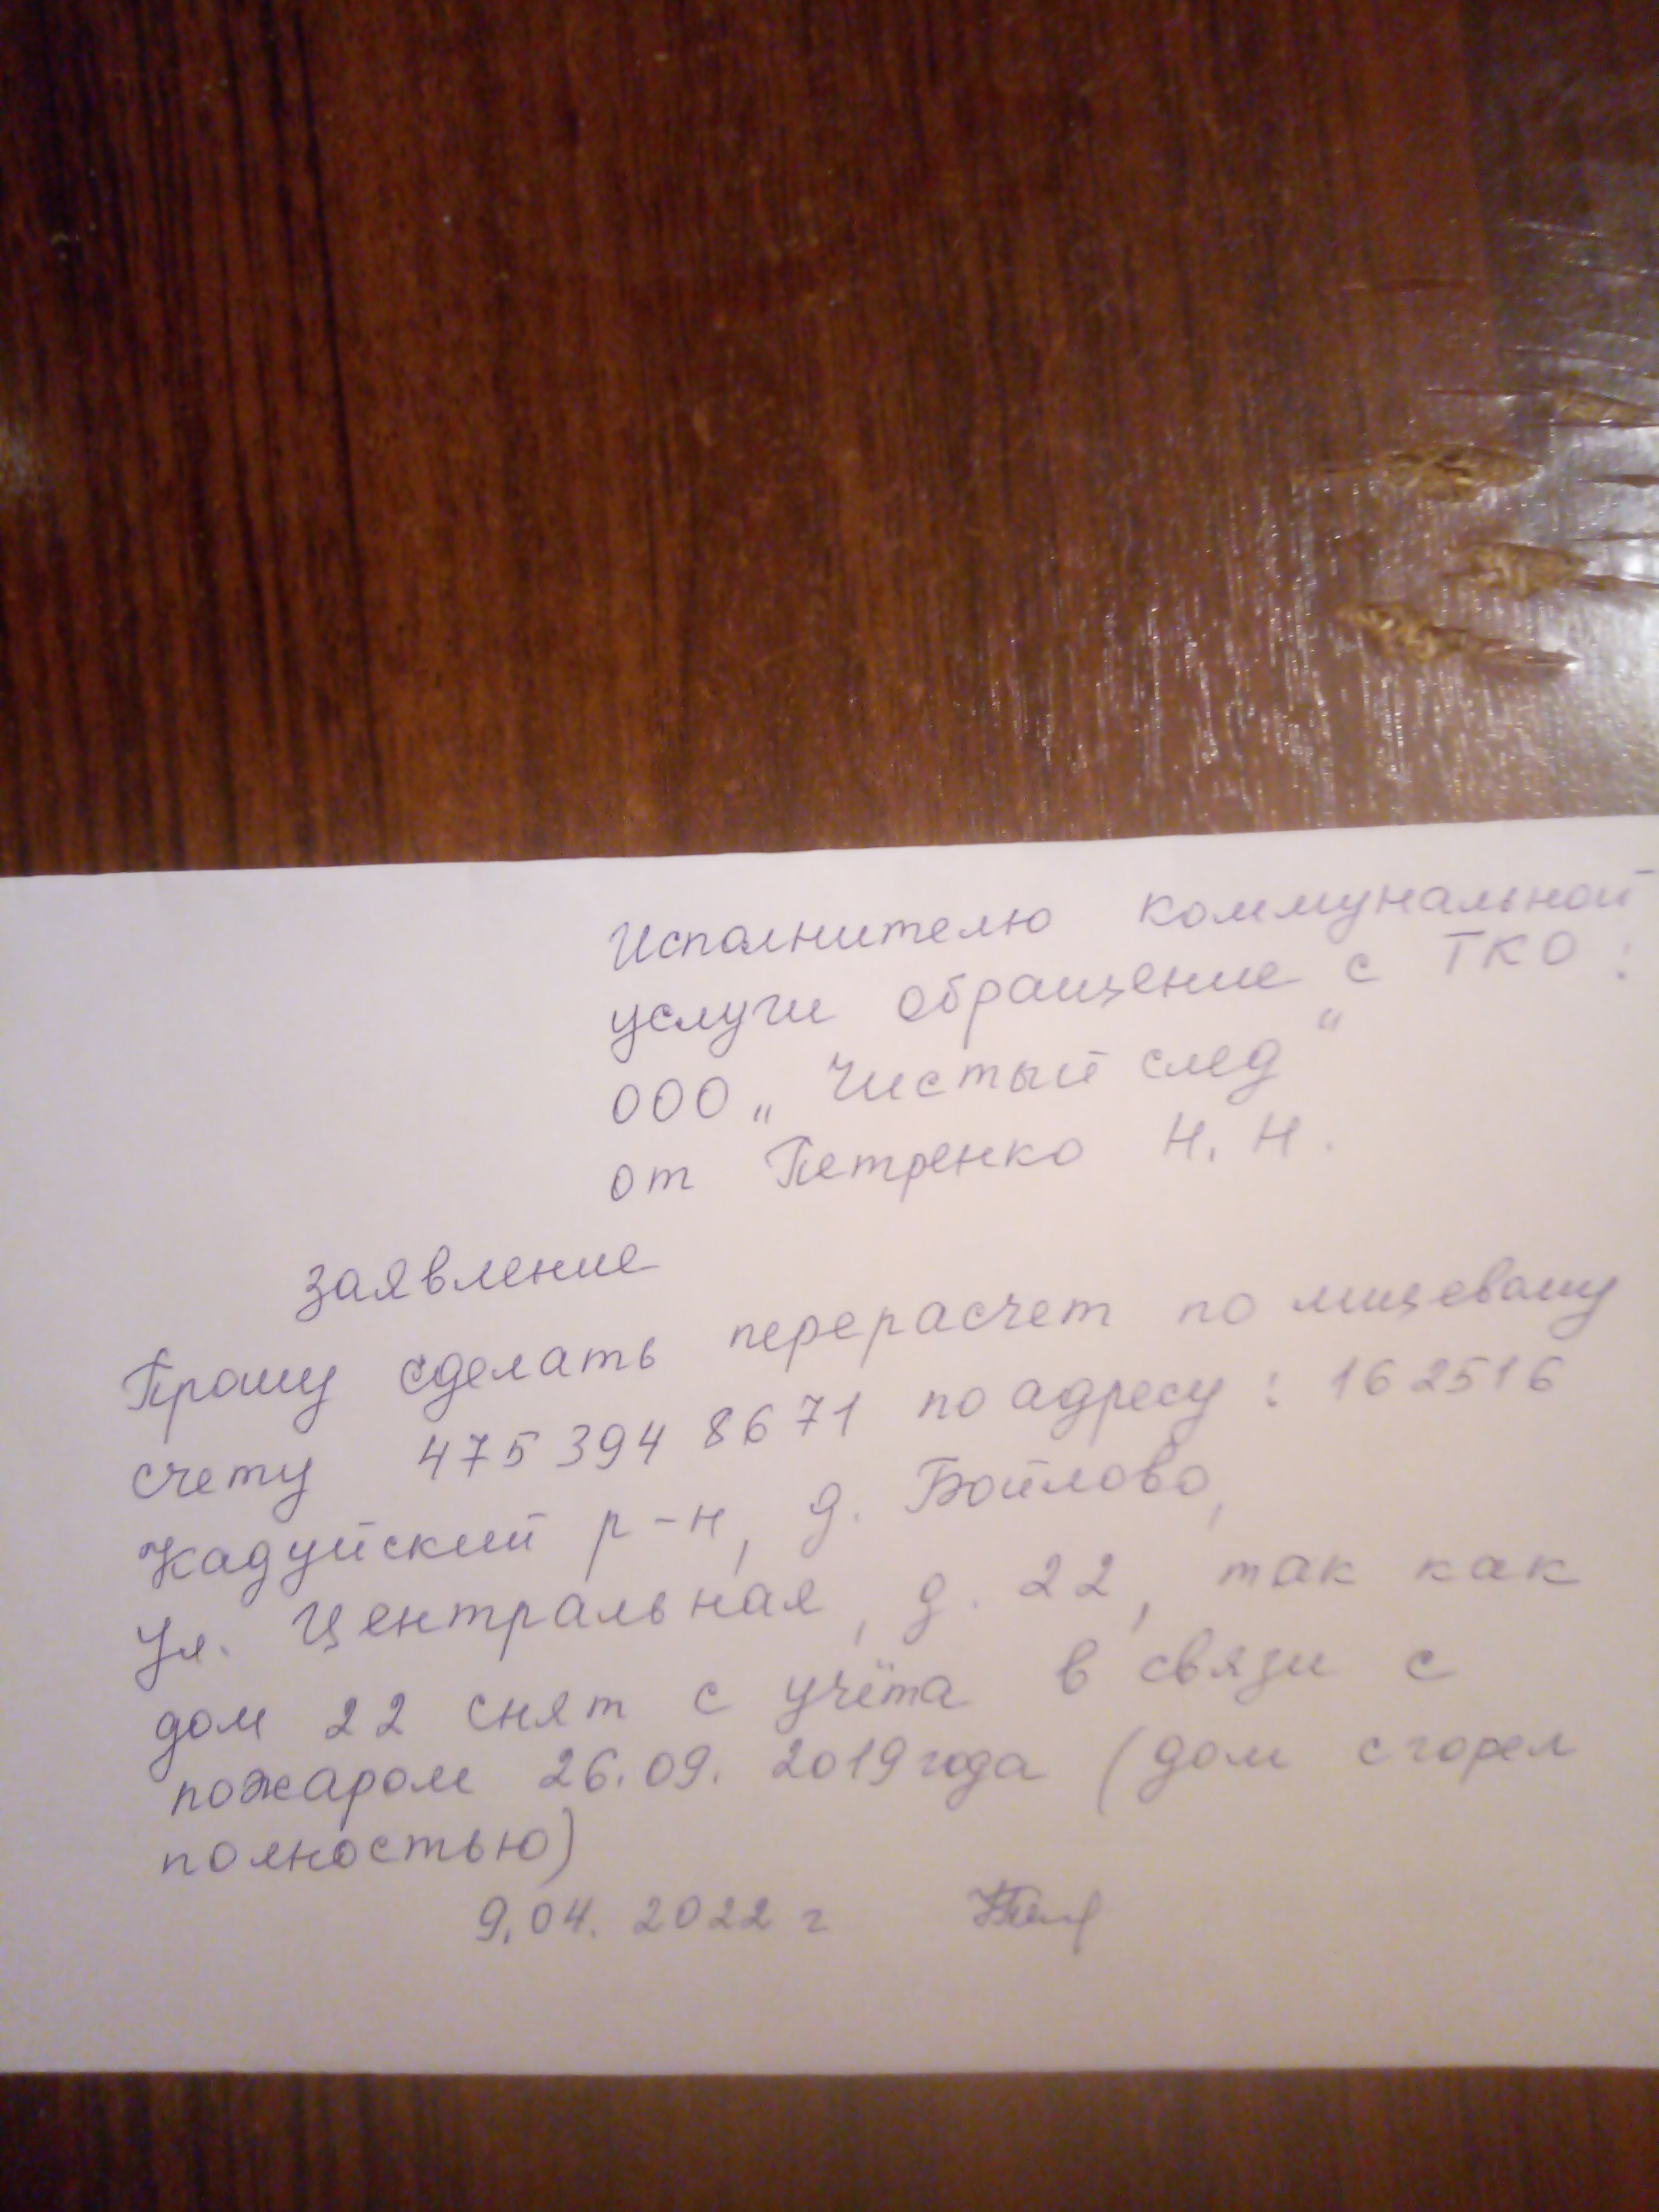 Исполнителю коммунальной
услуги обращение с ТКО:
ООО „Чистый след"
от Петренко Н. Н.
заявление
Прошу сделать перерасчет по лицевому
счету 475 394 8671 по адресу: 162516
Кадуйский р-н, д. Бойлово,
Ул. Центральная, д. 22, так как
дом 22 снят с учёта в связи с
пожаром 26.09. 2019 года (дом сгорел
полностью)
9.04. 2022 г